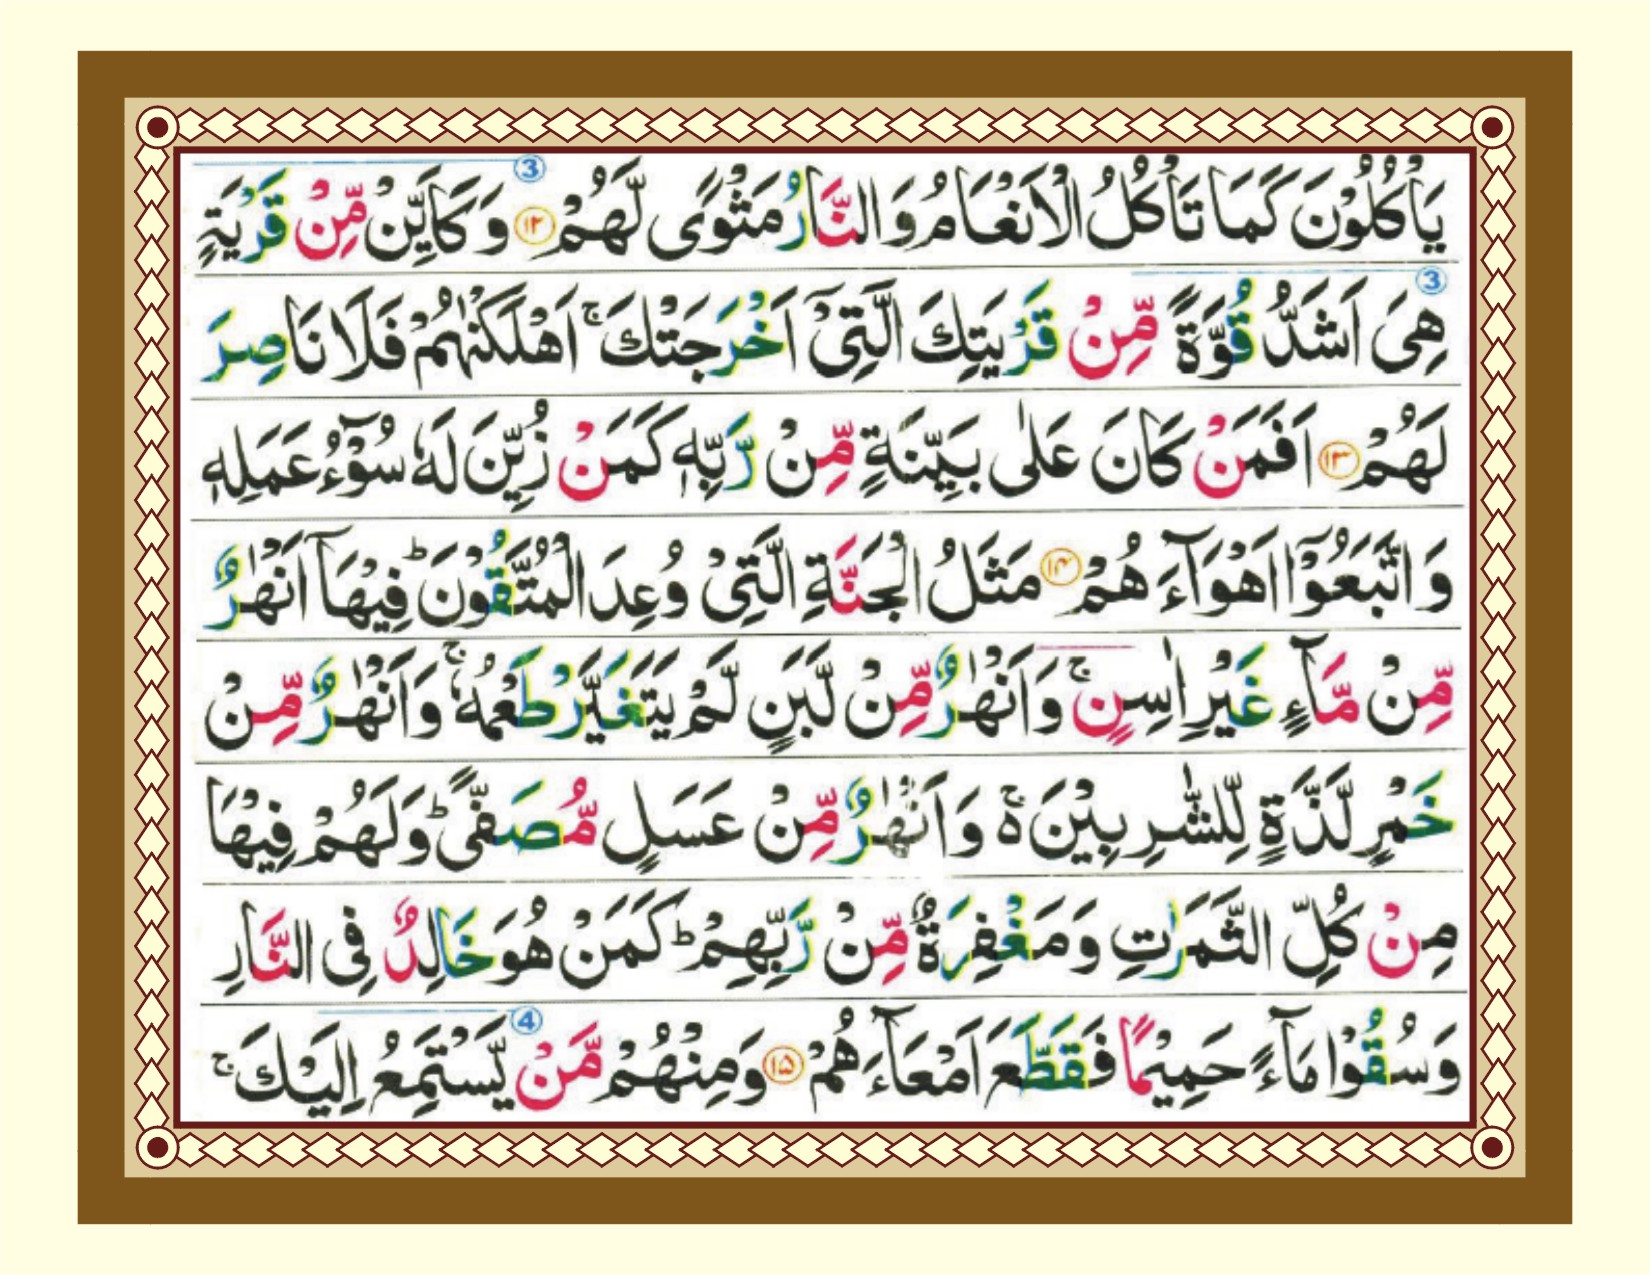 يَاْكُلُوْنَ كَمَا تَاْكُلُ الْاَنْعَامُ وَ النَّارُ مَثْوًى لَّهُمْ ۝۱۲ 3 وَ كَاَيِّنْ مِّنْ قَرْيَةٍ
3 هِیَ اَشَدُّ قُوَّةً مِّنْ قَرْيَتِكَ الَّتِیْۤ اَخْرَجَتْكَ ۚ اَهْلَكْنٰهُمْ فَلَا نَاصِرَ
لَهُمْ ۝۱۳ اَفَمَنْ كَانَ عَلٰى بَيِّنَةٍ مِّنْ رَّبِّهٖ كَمَنْ زُيِّنَ لَهٗ سُوْٓءُ عَمَلِهٖ
وَ اتَّبَعُوْۤا اَهْوَآءَ هُمْ ۝۱۴ مَثَلُ الْجَنَّةِ الَّتِیْ وُعِدَ الْمُتَّقُوْنَ ؕ فِيْهَاۤ اَنْهٰرٌ
مِّنْ مَّآءٍ غَيْرِ اٰسِنٍ ۚ وَ اَنْهٰرٌ مِّنْ لَّبَنٍ لَّمْ يَتَغَيَّرْ طَعْمُهٗ ۚ وَ اَنْهٰرٌ مِّنْ
خَمْرٍ لَّذَّةٍ لِّلشّٰرِبِيْنَ ۚ۬ وَ اَنْهٰرٌ مِّنْ عَسَلٍ مُّصَفًّى ؕ وَ لَهُمْ فِيْهَا
مِنْ كُلِّ الثَّمَرٰتِ وَ مَغْفِرَةٌ مِّنْ رَّبِّهِمْ ؕ كَمَنْ هُوَ خَالِدٌ فِی النَّارِ
وَ سُقُوْا مَآءً حَمِيْمًا فَقَطَّعَ اَمْعَآءَ هُمْ ۝۱۵ وَ مِنْهُمْ 4 مَّنْ يَّسْتَمِعُ اِلَيْكَ ۚ